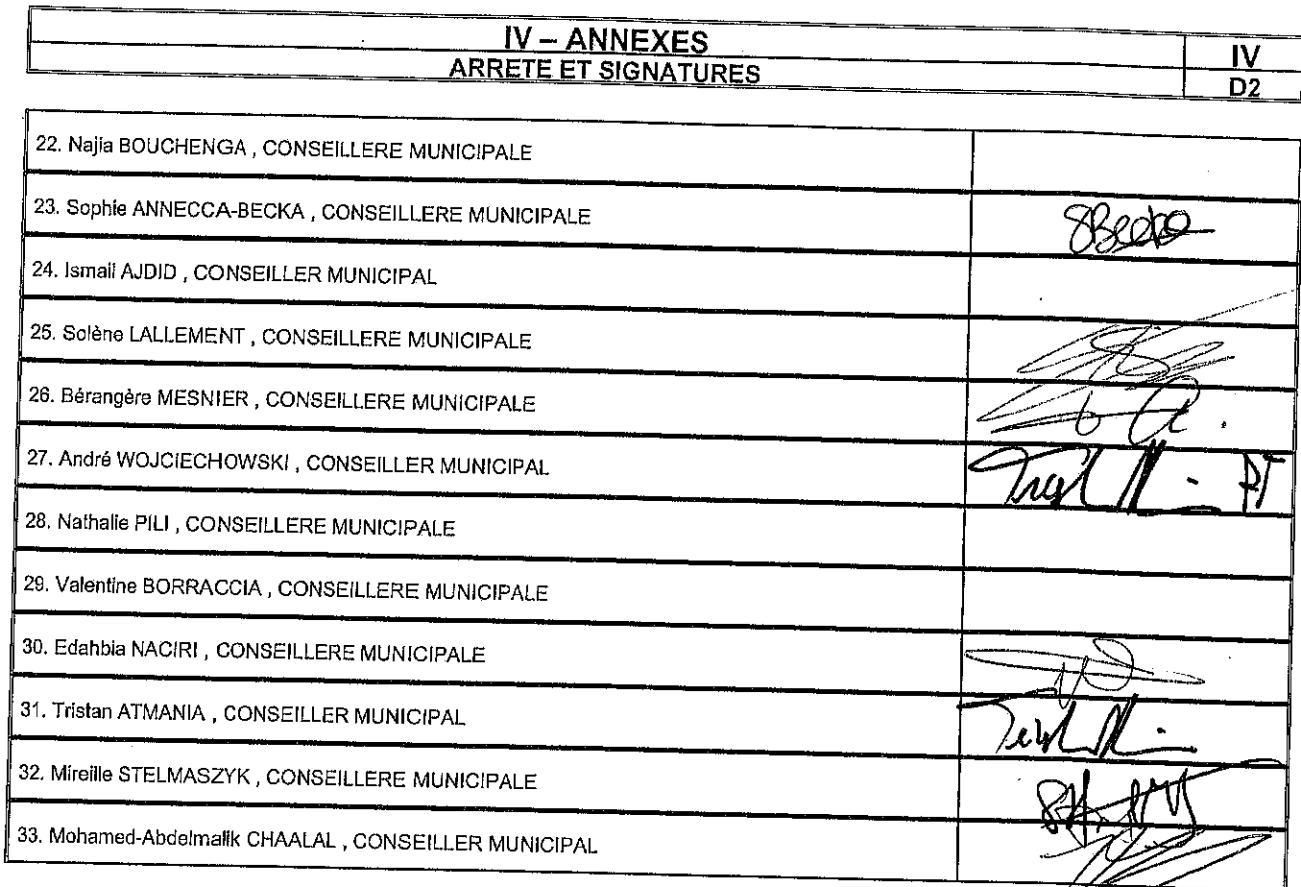 IV – ANNEXES
IV
ARRETE ET SIGNATURES
D2
22. Najia BOUCHENGA , CONSEILLERE MUNICIPALE
23. Sophie ANNECCA-BECKA , CONSEILLERE MUNICIPALE
SBecka
24. Ismail AJDID , CONSEILLER MUNICIPAL
25. Solène LALLEMENT , CONSEILLERE MUNICIPALE
26. Bérangère MESNIER , CONSEILLERE MUNICIPALE
27. André WOJCIECHOWSKI , CONSEILLER MUNICIPAL
28. Nathalie PILI , CONSEILLERE MUNICIPALE
29. Valentine BORRACCIA , CONSEILLERE MUNICIPALE
30. Edahbia NACIRI , CONSEILLERE MUNICIPALE
31. Tristan ATMANIA , CONSEILLER MUNICIPAL
32. Mireille STELMASZYK , CONSEILLERE MUNICIPALE
33. Mohamed-Abdelmalik CHAALAL , CONSEILLER MUNICIPAL